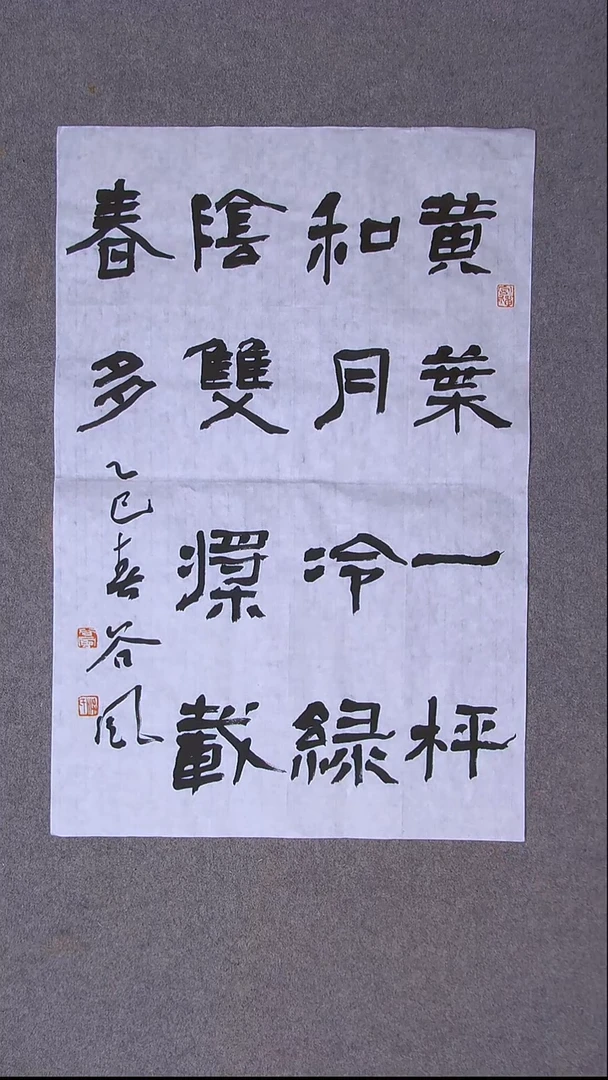 黄葉一枰
和月冷緑
陰雙槳載
春多
乙巳春谷風